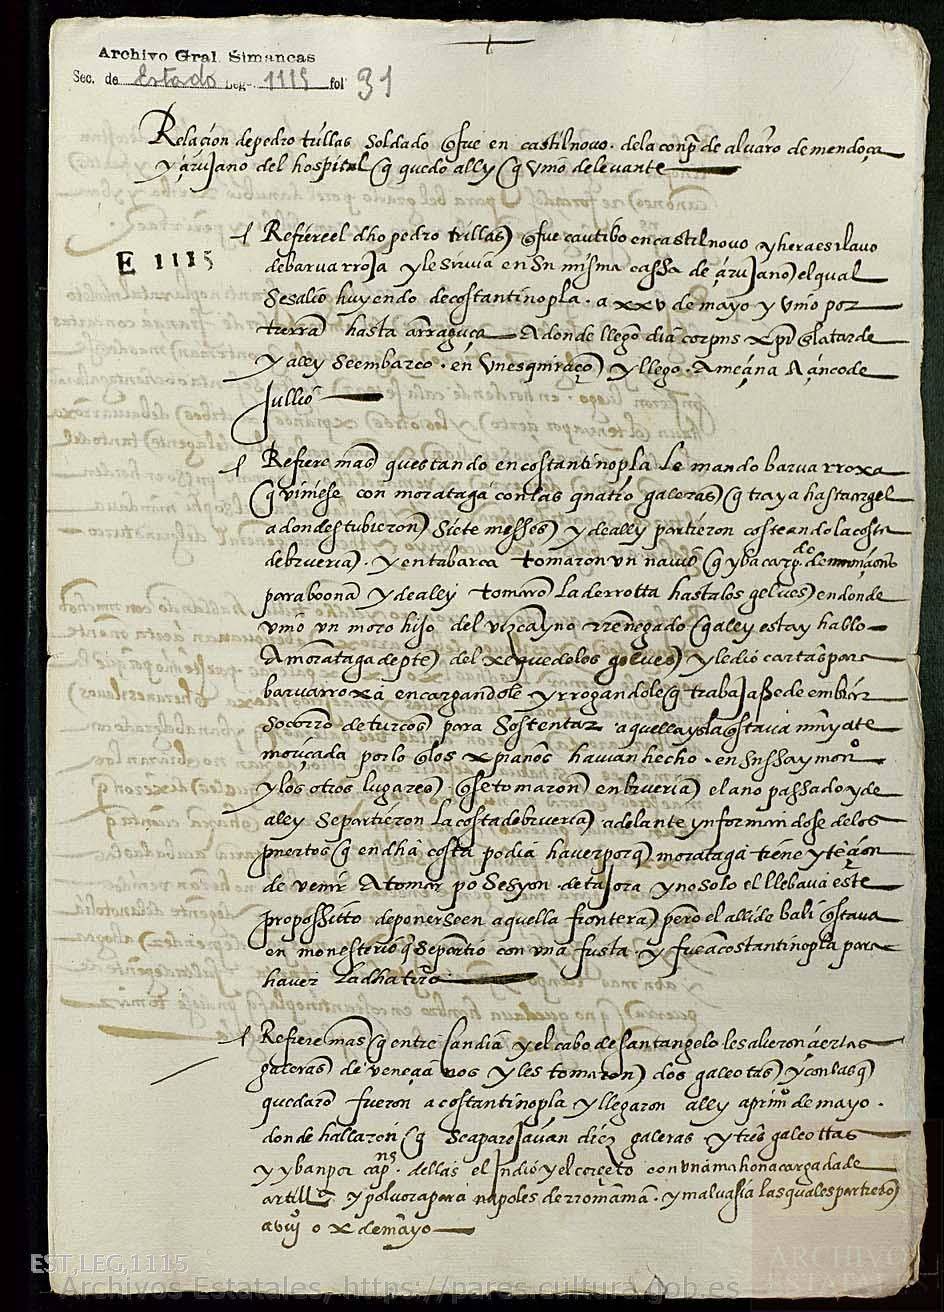 Archivo Gral. Simancas
Sec. de Estado Leg. 1115 fol 31
Relacion de pedro trillas soldado q fue en castilnovo. de la conpª de alvaro de mendoça
y çirujano del hospital q quedo ally q vino de levante
E 1115
Refiere el dho pedro trillas q fue cautibo en castilnovo y hera esclavo
de barvarroja y le servia en su misma cassa de çirujano el qual
se salio huyendo de costantinopla. a xxv de mayo y vino por
tierra hasta arraguça a donde llego dia corpus xpi a la tarde
y alley se embarco. en un esquiraço y llego. a meçina a çinco de
Jullio
Refiere mas questando en costantinopla le mando barvarroxa
q viniese con morataga con las quatro galeras q traya hasta argel
a donde stubieron siete messes y de ally partieron costeando la costa
de brueria. y en tabarca tomaron un navio q yba cargdo de muniçions
para boona y de alley tomaro la derrotta hasta los gelves en donde
vino un moro hijo del vizcayno rrenegado q alley esta y hallo
a morataga de pte del xeque de los gelves y le dio cartas para
barvarroxa encargandole y rrogandole q trabajasse de embiar
socorro de turcos para sostentar aquella ysla q stava muy ate
moriçada por lo q los xpianos havian hecho. en sussa y monro
y los otros lugares q se tomaron en brueria el ano passado y de
alley se partieron la costa de brueria adelante ynformandose de los
puertos q en dha costa podia haver porq morataga tiene yteçion
de venir a tomar posesyon. de tajora y no solo el llebava este
propossitto de ponerse en aquella frontera pero el allide bali q stava
en monesterio q se partio con una fusta. y fue a costantinopla para
haver la dha tiro
Refiere mas q entre Candia y el cabo de santangelo le salieron çiertas
galeras de veneçianos y les tomaron dos galeotas y con las q
quedaro fueron a costantinopla y llegaron alley a primo de mayo.
donde hallaron q se aparejavan diez galeras. y tres galeottas
y yban por capns. dellas el Indio y el corçeto con una mahona cargada de
artillª y polvora para napoles de rromania. y malvasia las quales partiero
a viijº o x de mayo
EST,LEG,1115
Archivos Estatales, https://pares.cultura.gob.es
ARCHIVO